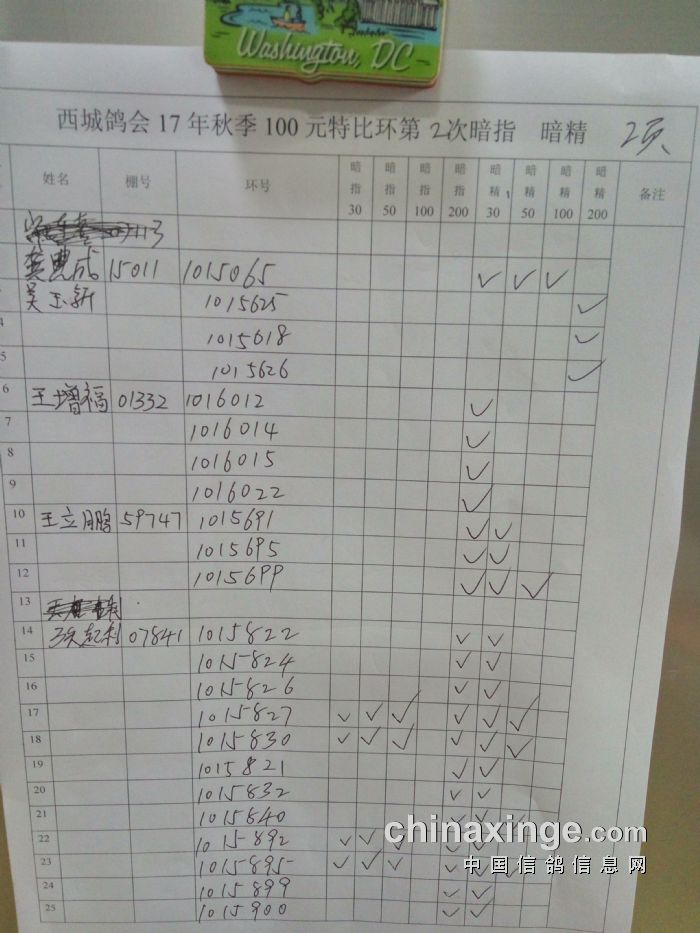 Washington, DC
西城鸽会17年秋季100元特比环第2次暗指 暗精 2页
姓名 棚号 环号 暗指30 暗指50 暗指100 暗指200 暗精30 暗精50 暗精100 暗精200 备注
113
成 15011 1015065 ✓ ✓ ✓
吴玉新 1015625 ✓
4 1015618 ✓
5 1015626 ✓
6 王增福 01332 1016012 ✓
7 1016014 ✓
8 1016015 ✓
9 1016022 ✓
10 王立鹏 59747 1015691 ✓ ✓
11 1015695 ✓ ✓
12 1015699 ✓ ✓ ✓
13
14 07841 1015822 ✓ ✓
15 1015824 ✓ ✓
16 1015826 ✓ ✓
17 1015827 ✓ ✓ ✓ ✓ ✓ ✓
18 1015830 ✓ ✓ ✓ ✓ ✓ ✓
19 1015821 ✓ ✓
20 1015832 ✓ ✓
21 1015840 ✓ ✓ ✓
22 1015892 ✓ ✓ ✓ ✓ ✓
23 1015895 ✓ ✓ ✓ ✓ ✓ ✓
24 1015899 ✓ ✓
25 1015900 ✓ ✓
chinaxinge.com
中国信鸽信息网